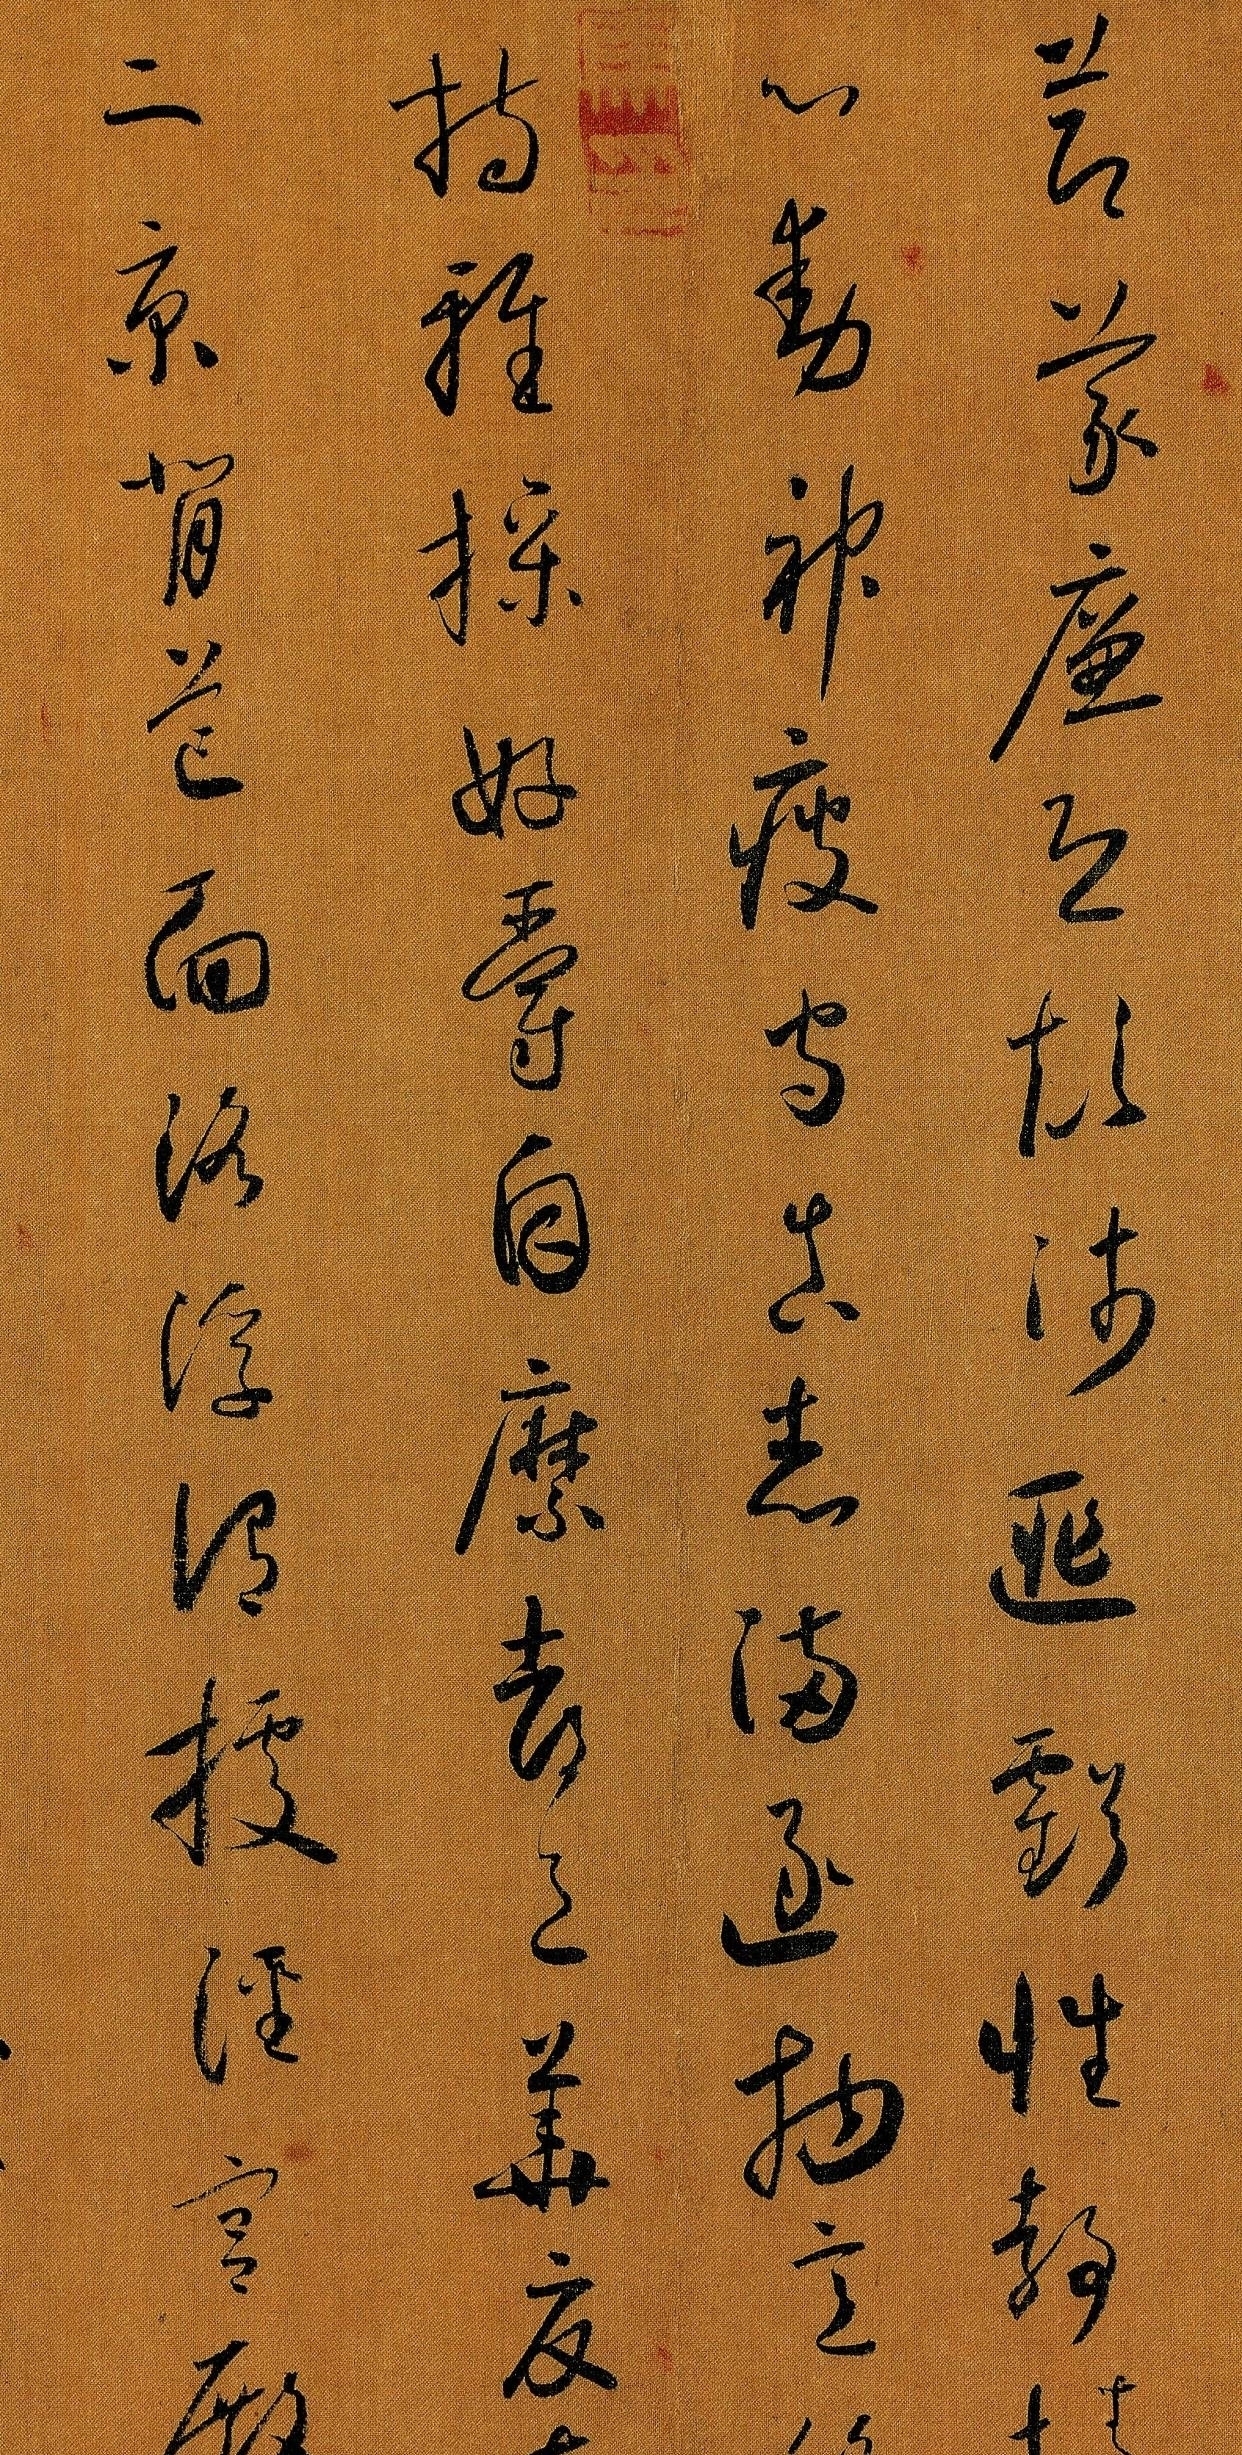 節義廉退顛沛匪虧性靜情
心動神疲守真志滿逐物意
持雅操好爵自縻都邑華夏
二京背芒面洛浮渭據涇宮殿